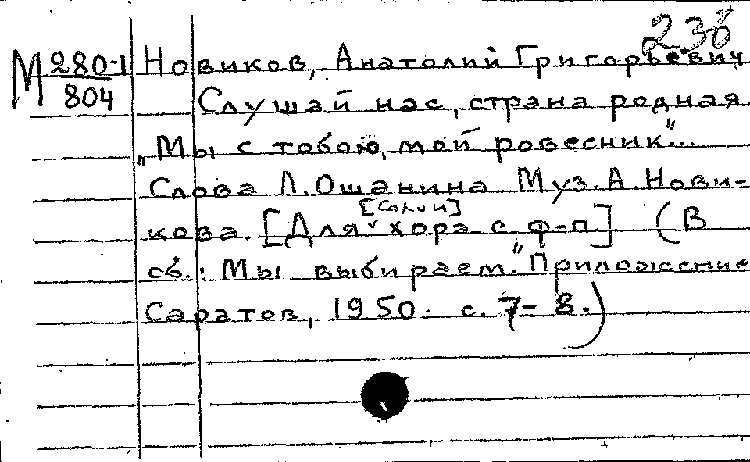 238
М 280-1 Новиков, Анатолий Григорьевич
804 Слушай нас, страна родная
„Мы с тобою, мой ровесник"...
Слова Л. Ошанина Муз. А. Нови-
[соли и]
кова. [Для хора с ф-п] (В
сб.: Мы выбираем." Приложение
Саратов, 1950. с. 7-8.)